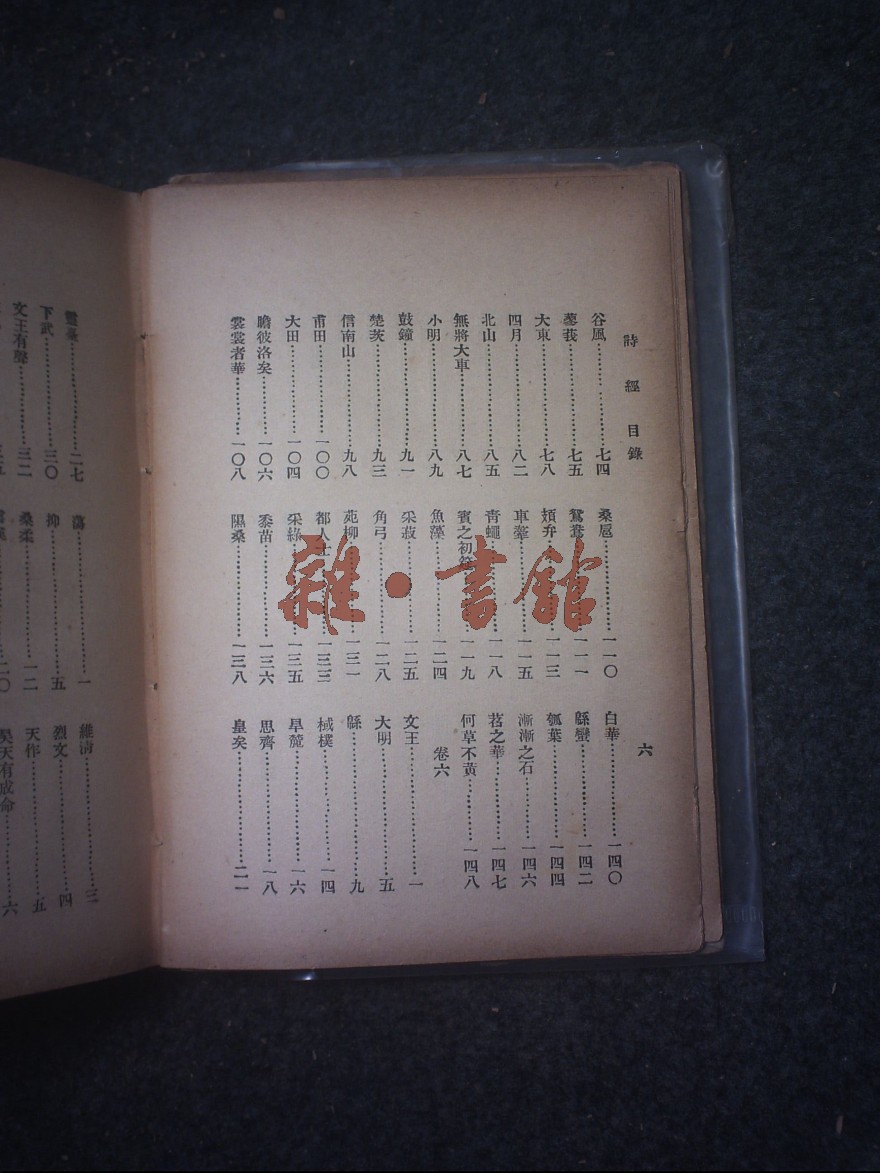 詩經目錄
六
谷風 七四
蓼莪 七五
大東 七八
四月 八二
北山 八五
無將大車 八七
小明 八九
鼓鐘 九一
楚茨 九三
信南山 九八
甫田 一〇〇
大田 一〇四
瞻彼洛矣 一〇六
裳裳者華 一〇八
桑扈 一一〇
鴛鴦 一一一
頍弁 一一三
車舝 一一五
青蠅 一一八
賓之初筵 一一九
魚藻 一二四
采菽 一二五
角弓 一二八
菀柳 一三一
都人士 一三三
采綠 一三五
黍苗 一三六
隰桑 一三八
白華 一四〇
緜蠻 一四二
瓠葉 一四四
漸漸之石 一四六
苕之華 一四七
何草不黃 一四八
卷六
文王 一
大明 五
緜 九
棫樸 一四
旱麓 一六
思齊 一八
皇矣 二一
靈臺 二七
下武 三〇
文王有聲 三二
蕩 一
抑 五
桑柔 一二
二〇
維清 三
烈文 四
天作 五
昊天有成命 六
雜·書館